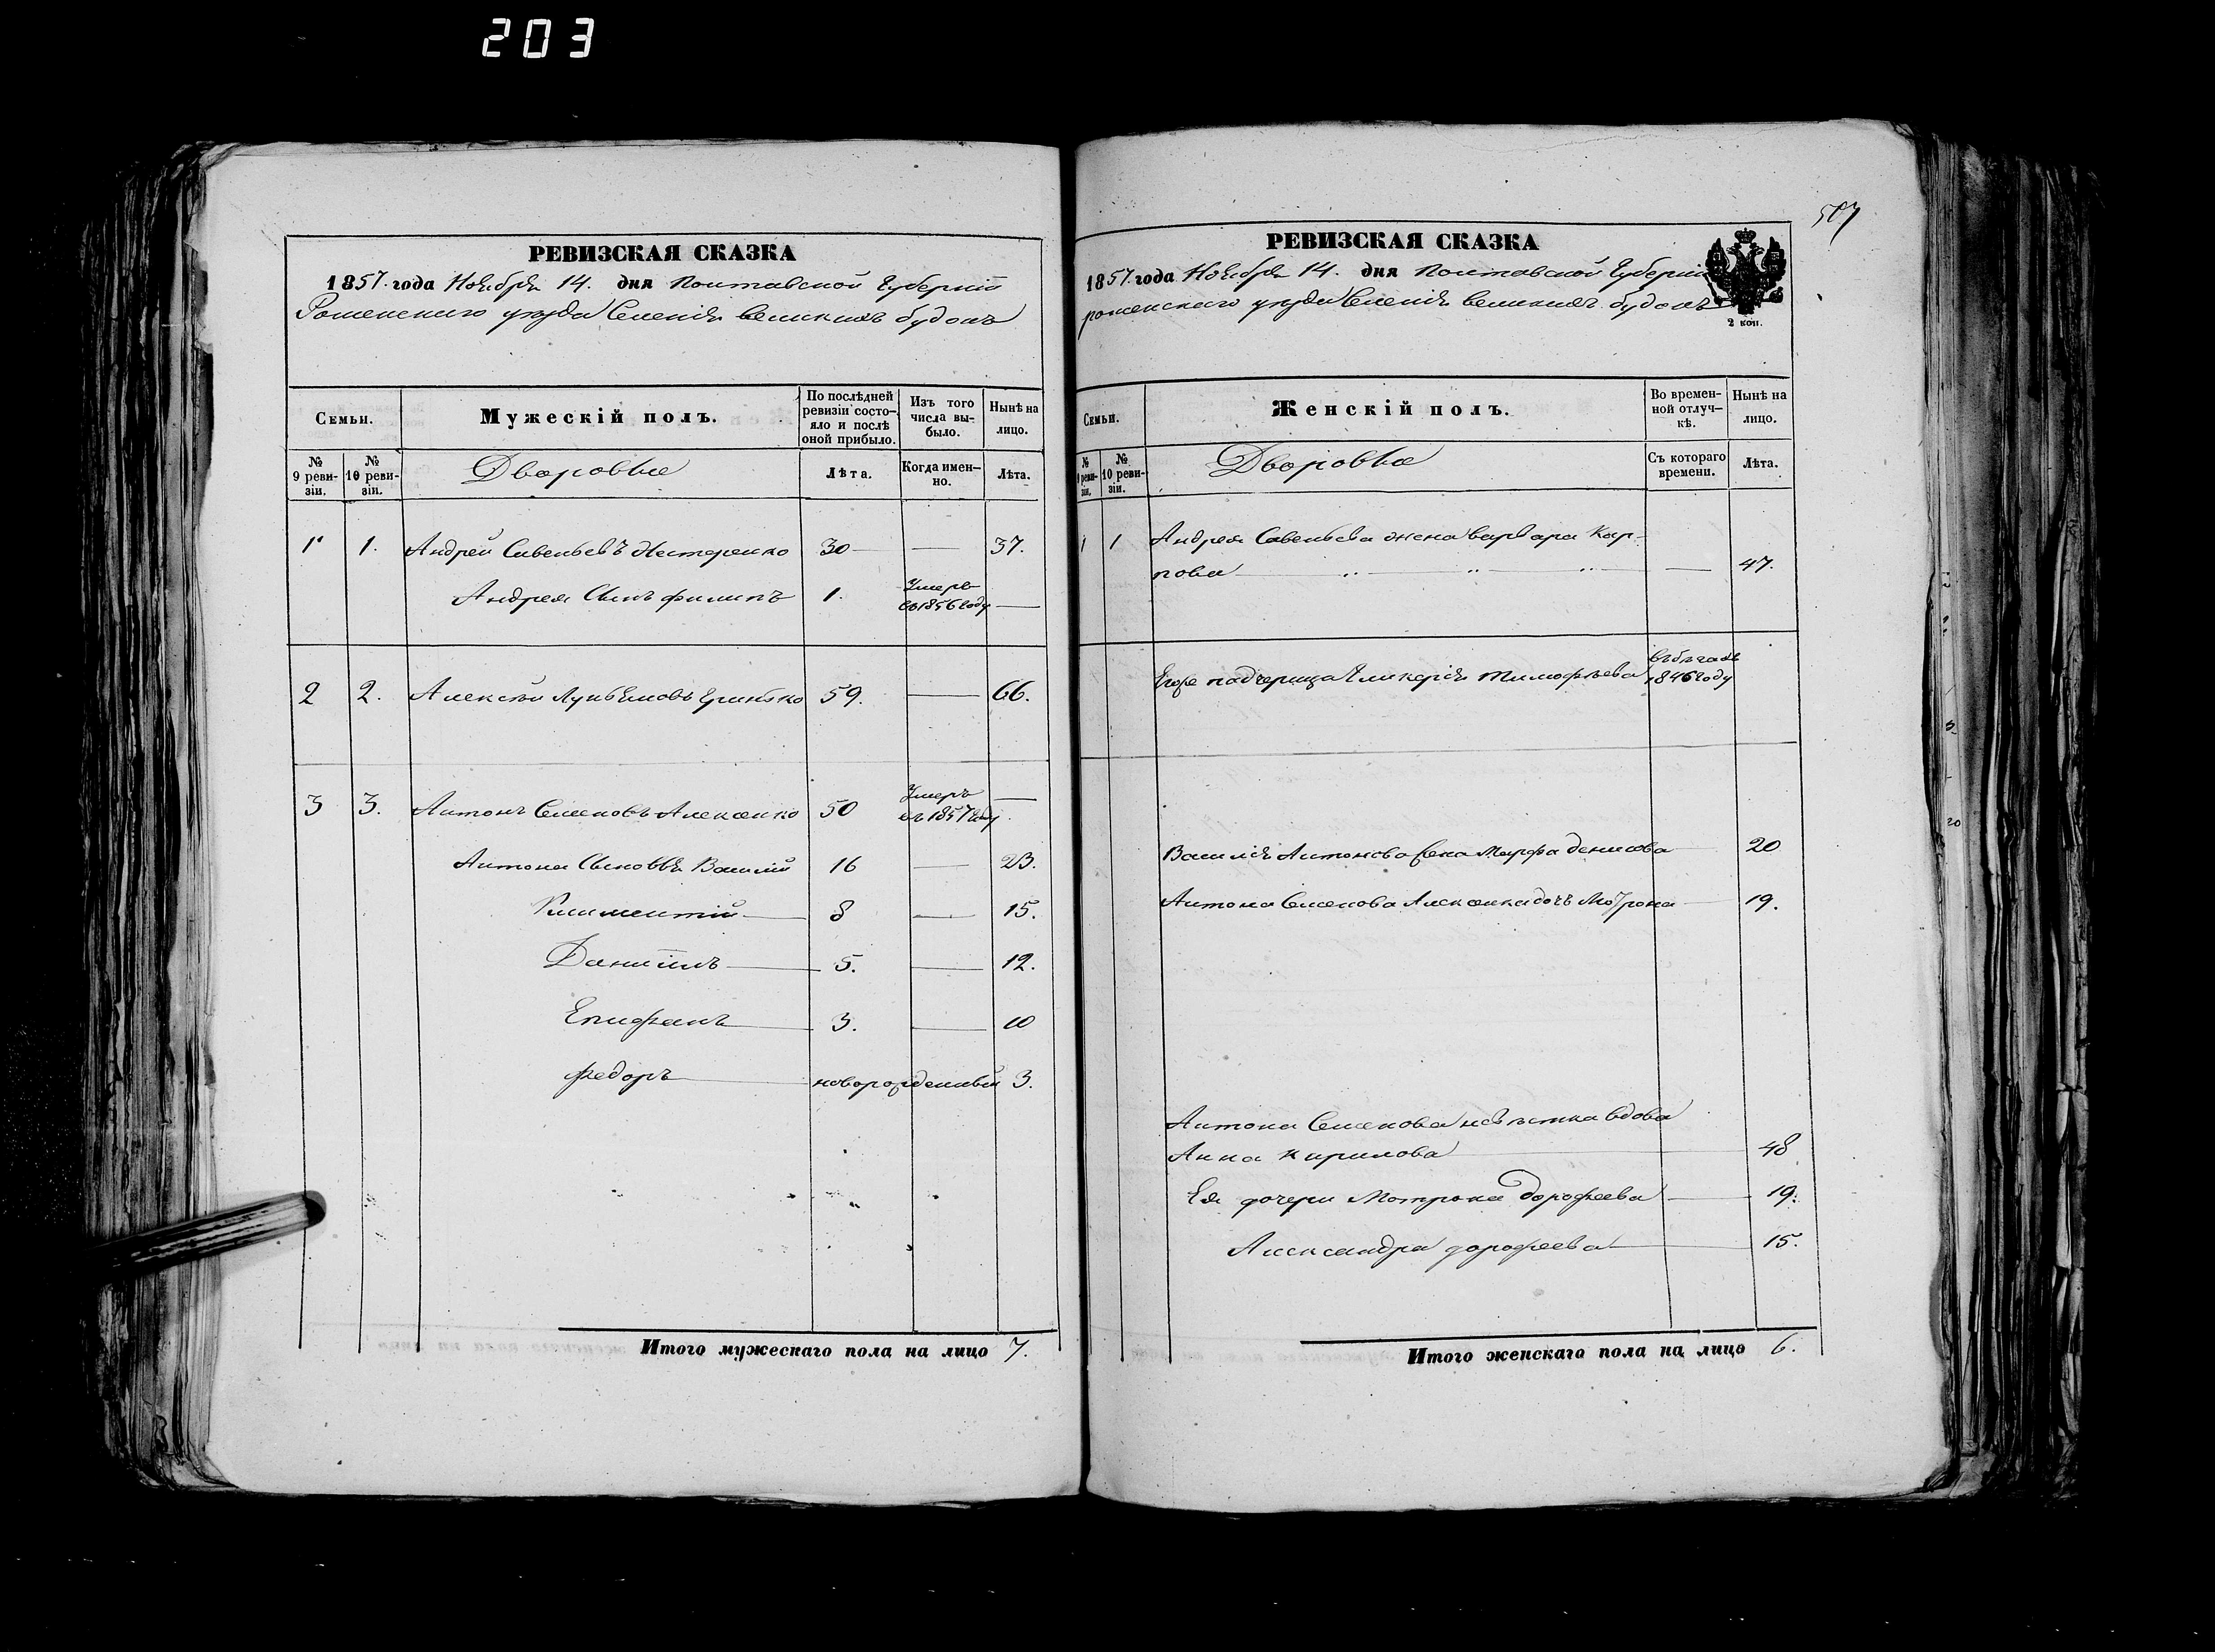 203
507
РЕВИЗСКАЯ СКАЗКА
1857. года Ноября 14. дня Полтавской Губернiи
Роменскаго уезда Селенiя великихъ будокъ
Семьи.
Мужескiй полъ.
По послѣдней ревизiи состо-
яло и послѣ
оной прибыло.
Изъ того
числа вы-
было.
Нынѣ на
лицо.
№ 9 реви-
зiи.
№ 10 реви-
зiи.
Дворовые
Лѣта.
Когда имен-
но.
Лѣта.
1 1. Андрей Савельевъ Нестеренко 30 — 37.
Андрея Сынъ филипъ 1. Умеръ
въ 1856 году —
2 2. Алексѣй Лукьяновъ 59. — 66.
3 3. Антонъ Семеновъ Алексенко 50 Умеръ
въ 1857 году —
Антона Сыновья Василiй 16 — 23.
Климентiй — 8 — 15.
Данiилъ — 5. — 12.
Епифанъ — 3. — 10
федоръ — новорожденный 3.
Итого мужескаго пола на лицо 7.
РЕВИЗСКАЯ СКАЗКА
1857. года Ноября 14. дня Полтавской Губернiи
роменскаго уезда Селенiя великихъ будокъ
2 коп.
Семьи.
Женскiй полъ.
Во времен-
ной отлуч-
кѣ.
Нынѣ на
лицо.
№ 9 реви-
зiи.
№ 10 реви-
зiи.
Дворовые
Съ котораго
времени.
Лѣта.
1 1 Андрея Савельева жена варвара Кар-
пова — — 47.
Егоже падчерица Гликерiя тимофѣева въ бѣгахъ
1846 году
Василiя Антонова жена Марфа денисова — 20
Антона Семенова Алексенка дочь Мотрона — 19.
Антона Семенова невѣстка вдова
Анна Кирилова — 48
Ея дочери Мотрона дорофеева — 19.
Александра дорофеева — 15.
Итого женскаго пола на лицо 6.